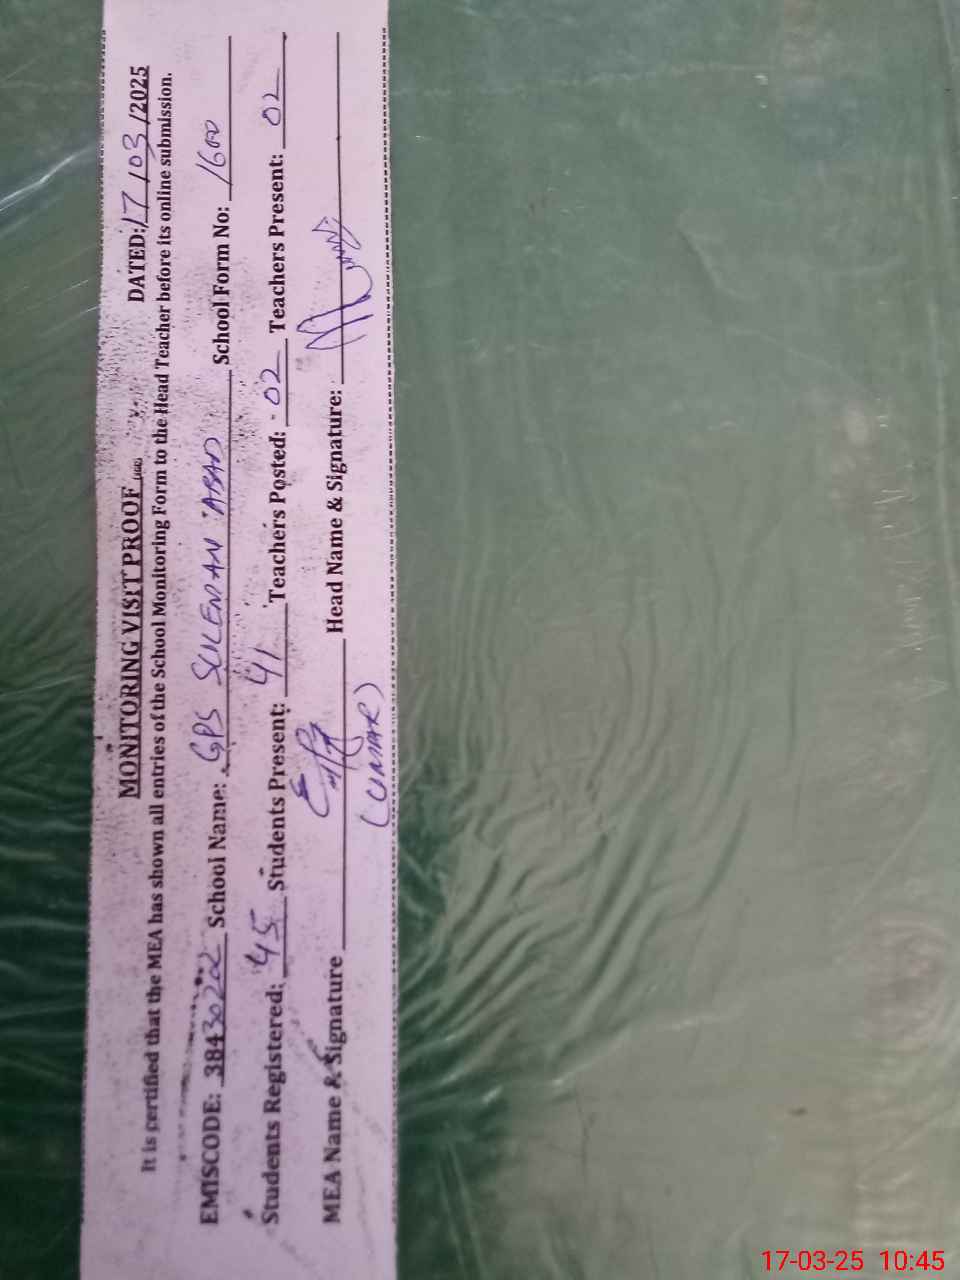 MONITORING VISIT PROOF DATED: 17/03/2025
It is certified that the MEA has shown all entries of the School Monitoring Form to the Head Teacher before its online submission.
EMISCODE: 38430202 School Name: GPS SULEMAN ABAD School Form No: 1600
Students Registered: 45 Students Present: 41 Teachers Posted: 02 Teachers Present: 02
MEA Name & Signature Head Name & Signature:
(UMAR)
17-03-25 10:45